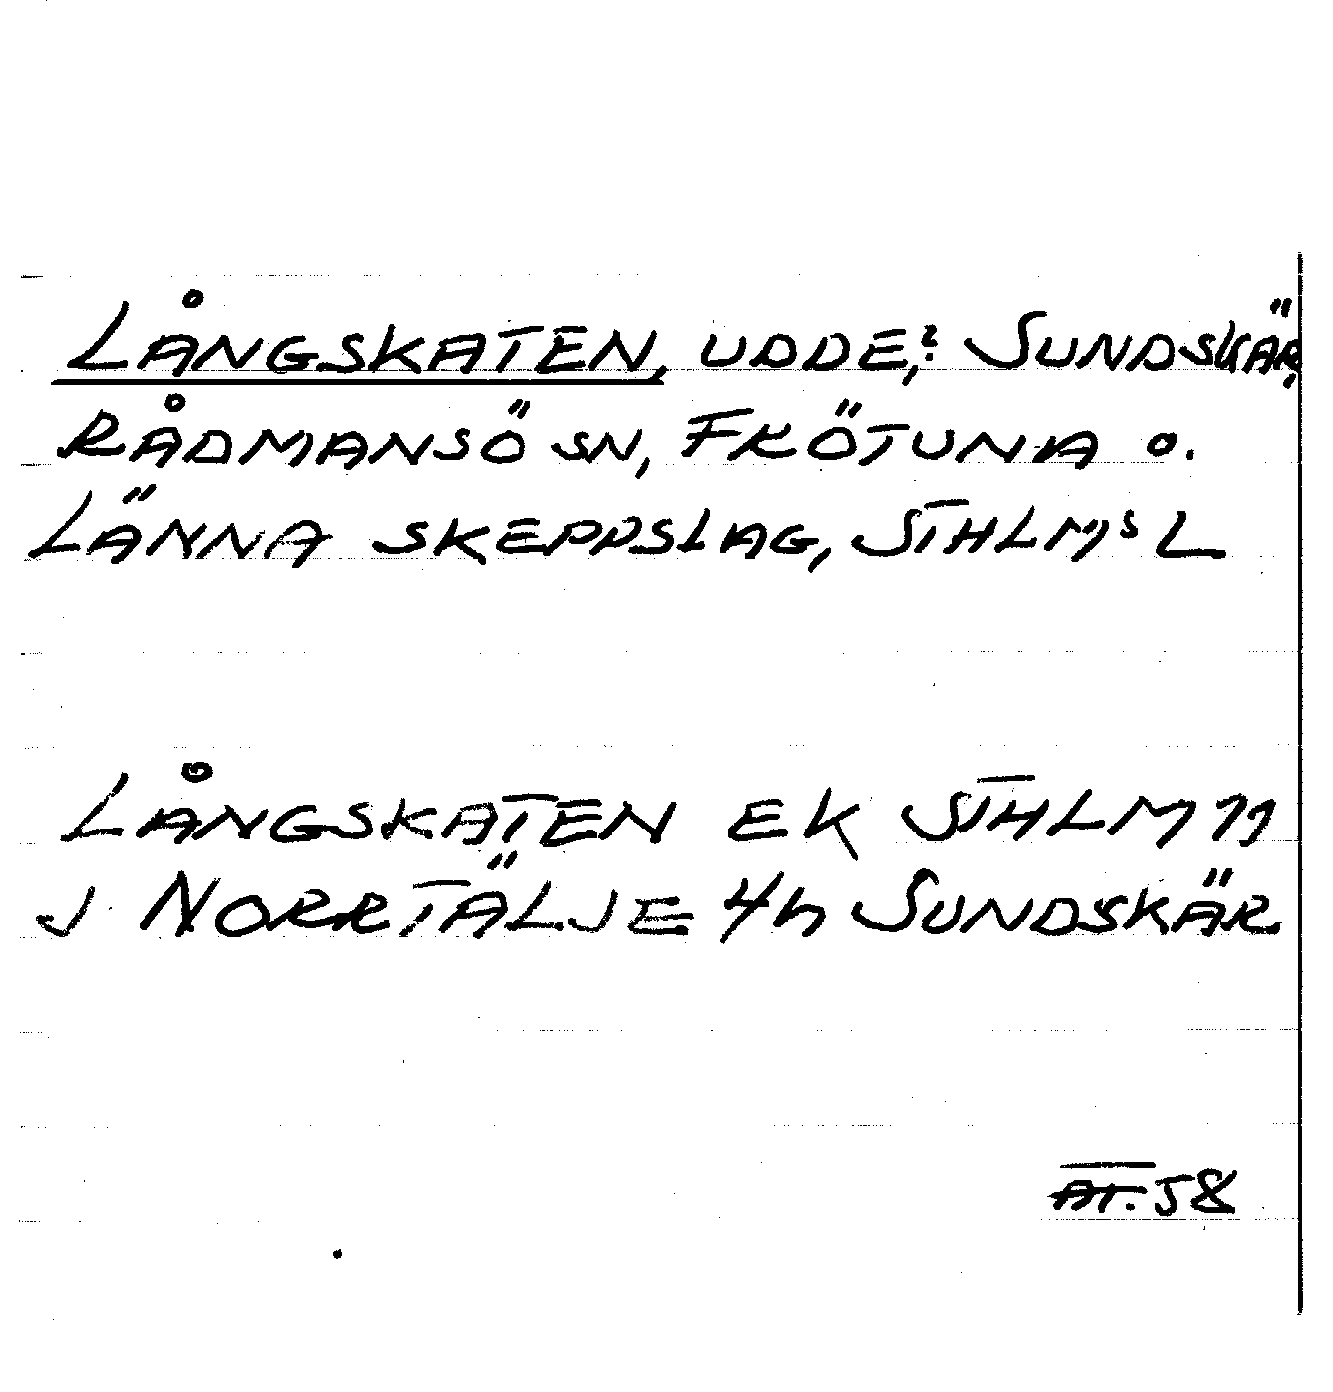 LÅNGSKATEN, UDDE,? SUNDSKÄR,
RÅDMANSÖ SN, FRÖTUNA O.
LÄNNA SKEPPSLAG, STHLMS L
LÅNGSKATEN EK STHLM 11
J NORRTÄLJE 4h SUNDSKÄR.
AT. 58